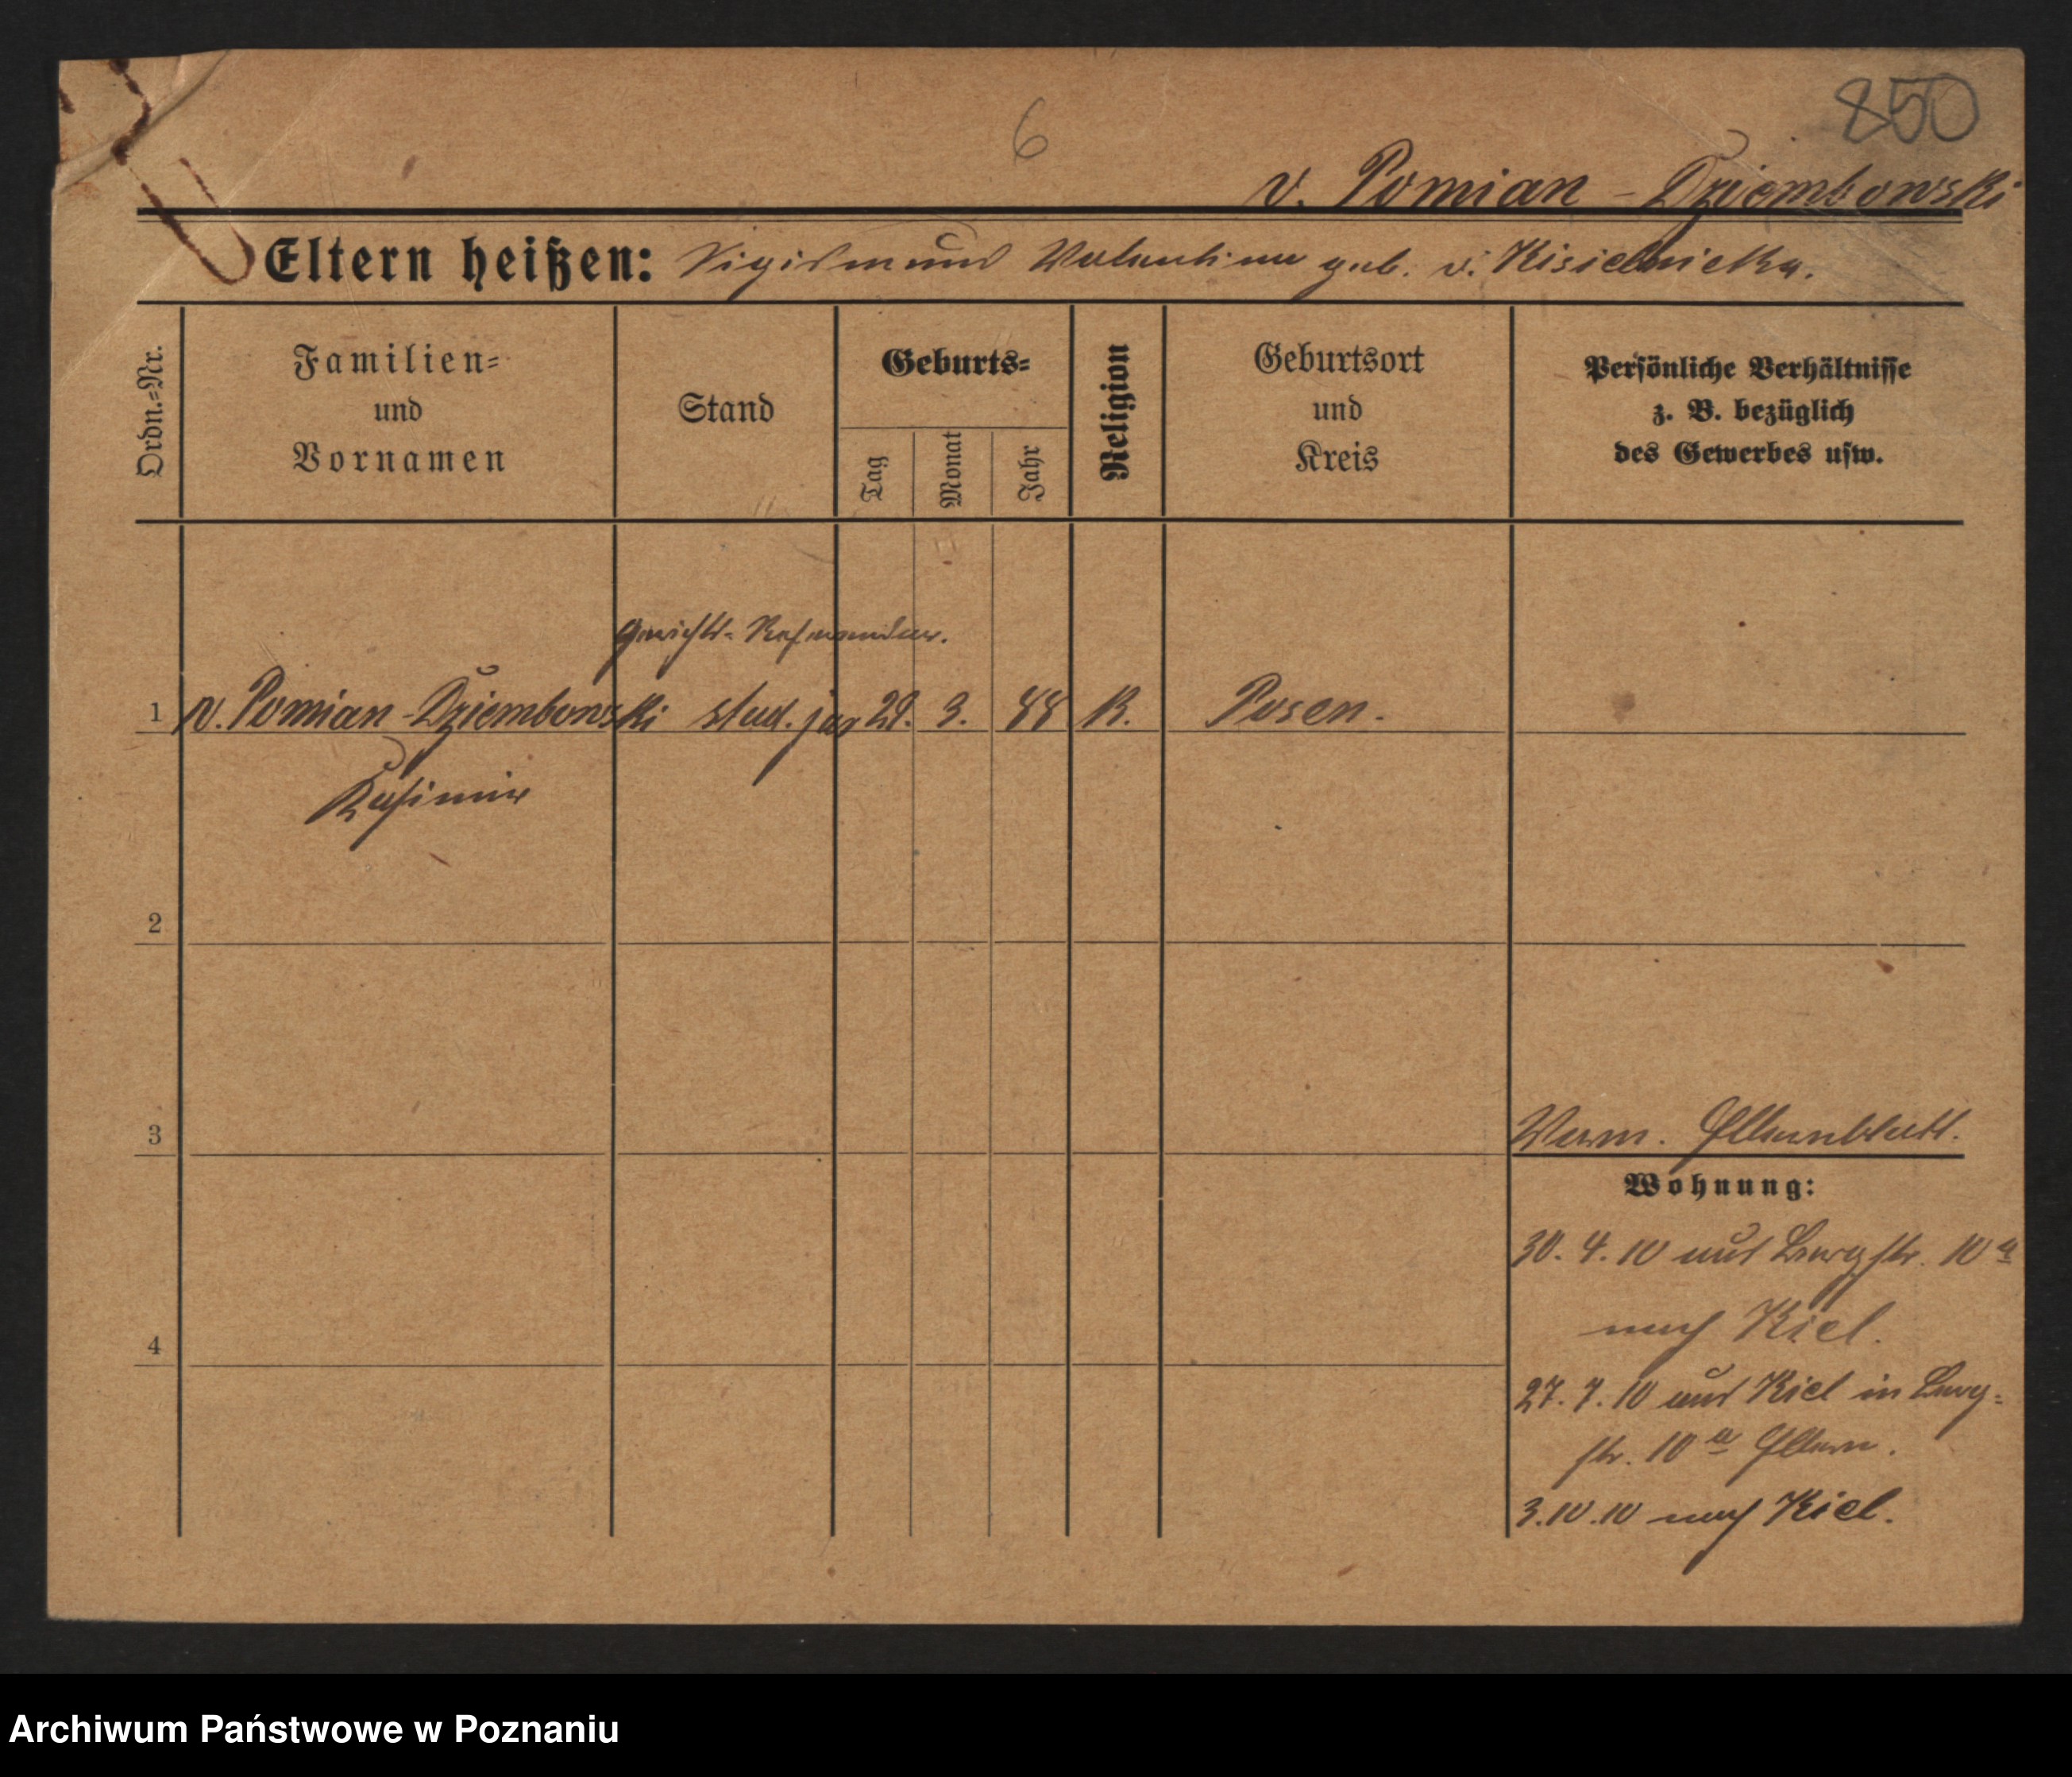 6
850
v. Pomian-Dziembowski
Eltern heißen: Sigismund Valentine geb. v. Kisielnicka.
Ordn.-Nr.
Familien-
und
Vornamen
Stand
Geburts-
Tag
Monat
Jahr
Religion
Geburtsort
und
Kreis
Persönliche Verhältnisse
z. B. bezüglich
des Gewerbes usw.
Gerichts-Referendar.
1 v. Pomian-Dziembowski stud. jur 28. 3. 88 K. Posen.
Kasimir
2
3
Verm. Elternblatt.
Wohnung:
30. 4. 10 aus Bergstr. 10 a
nach Kiel.
4
27. 7. 10 aus Kiel in Berg-
str. 10 a Eltern.
3.10.10 nach Kiel.
Archiwum Państwowe w Poznaniu